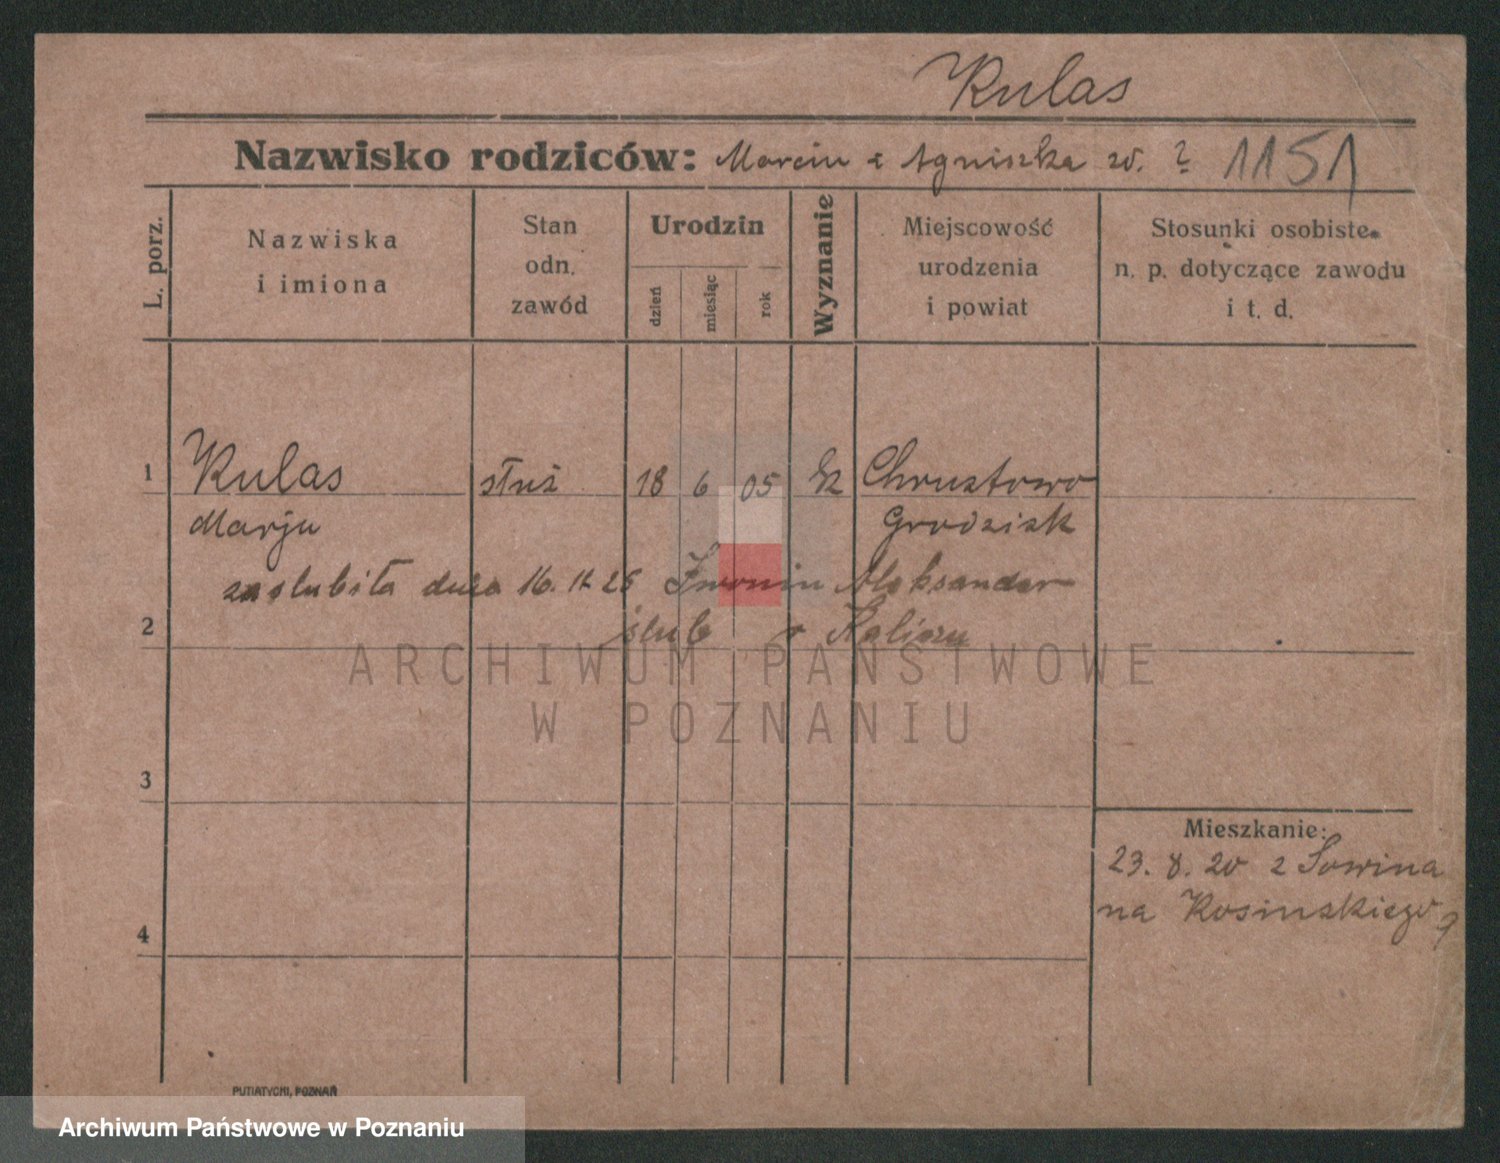 Kulas
Nazwisko rodziców: Marcin i Agniszka zd. ? 1151
L. porz.
Nazwiska
i imiona
Stan
odn.
zawód
Urodzin
dzień
miesiąc
rok
Wyznanie
Miejscowość
urodzenia
i powiat
Stosunki osobiste
n. p. dotyczące zawodu
i t. d.
1 Kulas służ 18 6 05 Chrustowo
Marja Grodzisk
zaślubiła dnia 16. 11 26 Aleksander
2 ślub Kaliszu
ARCHIWUM PAŃSTWOWE
W POZNANIU
3
Mieszkanie:
23. 8. 20 z Sowina
na Kosinskiego 9
4
PUTIATYCKI, POZNAŃ
Archiwum Państwowe w Poznaniu